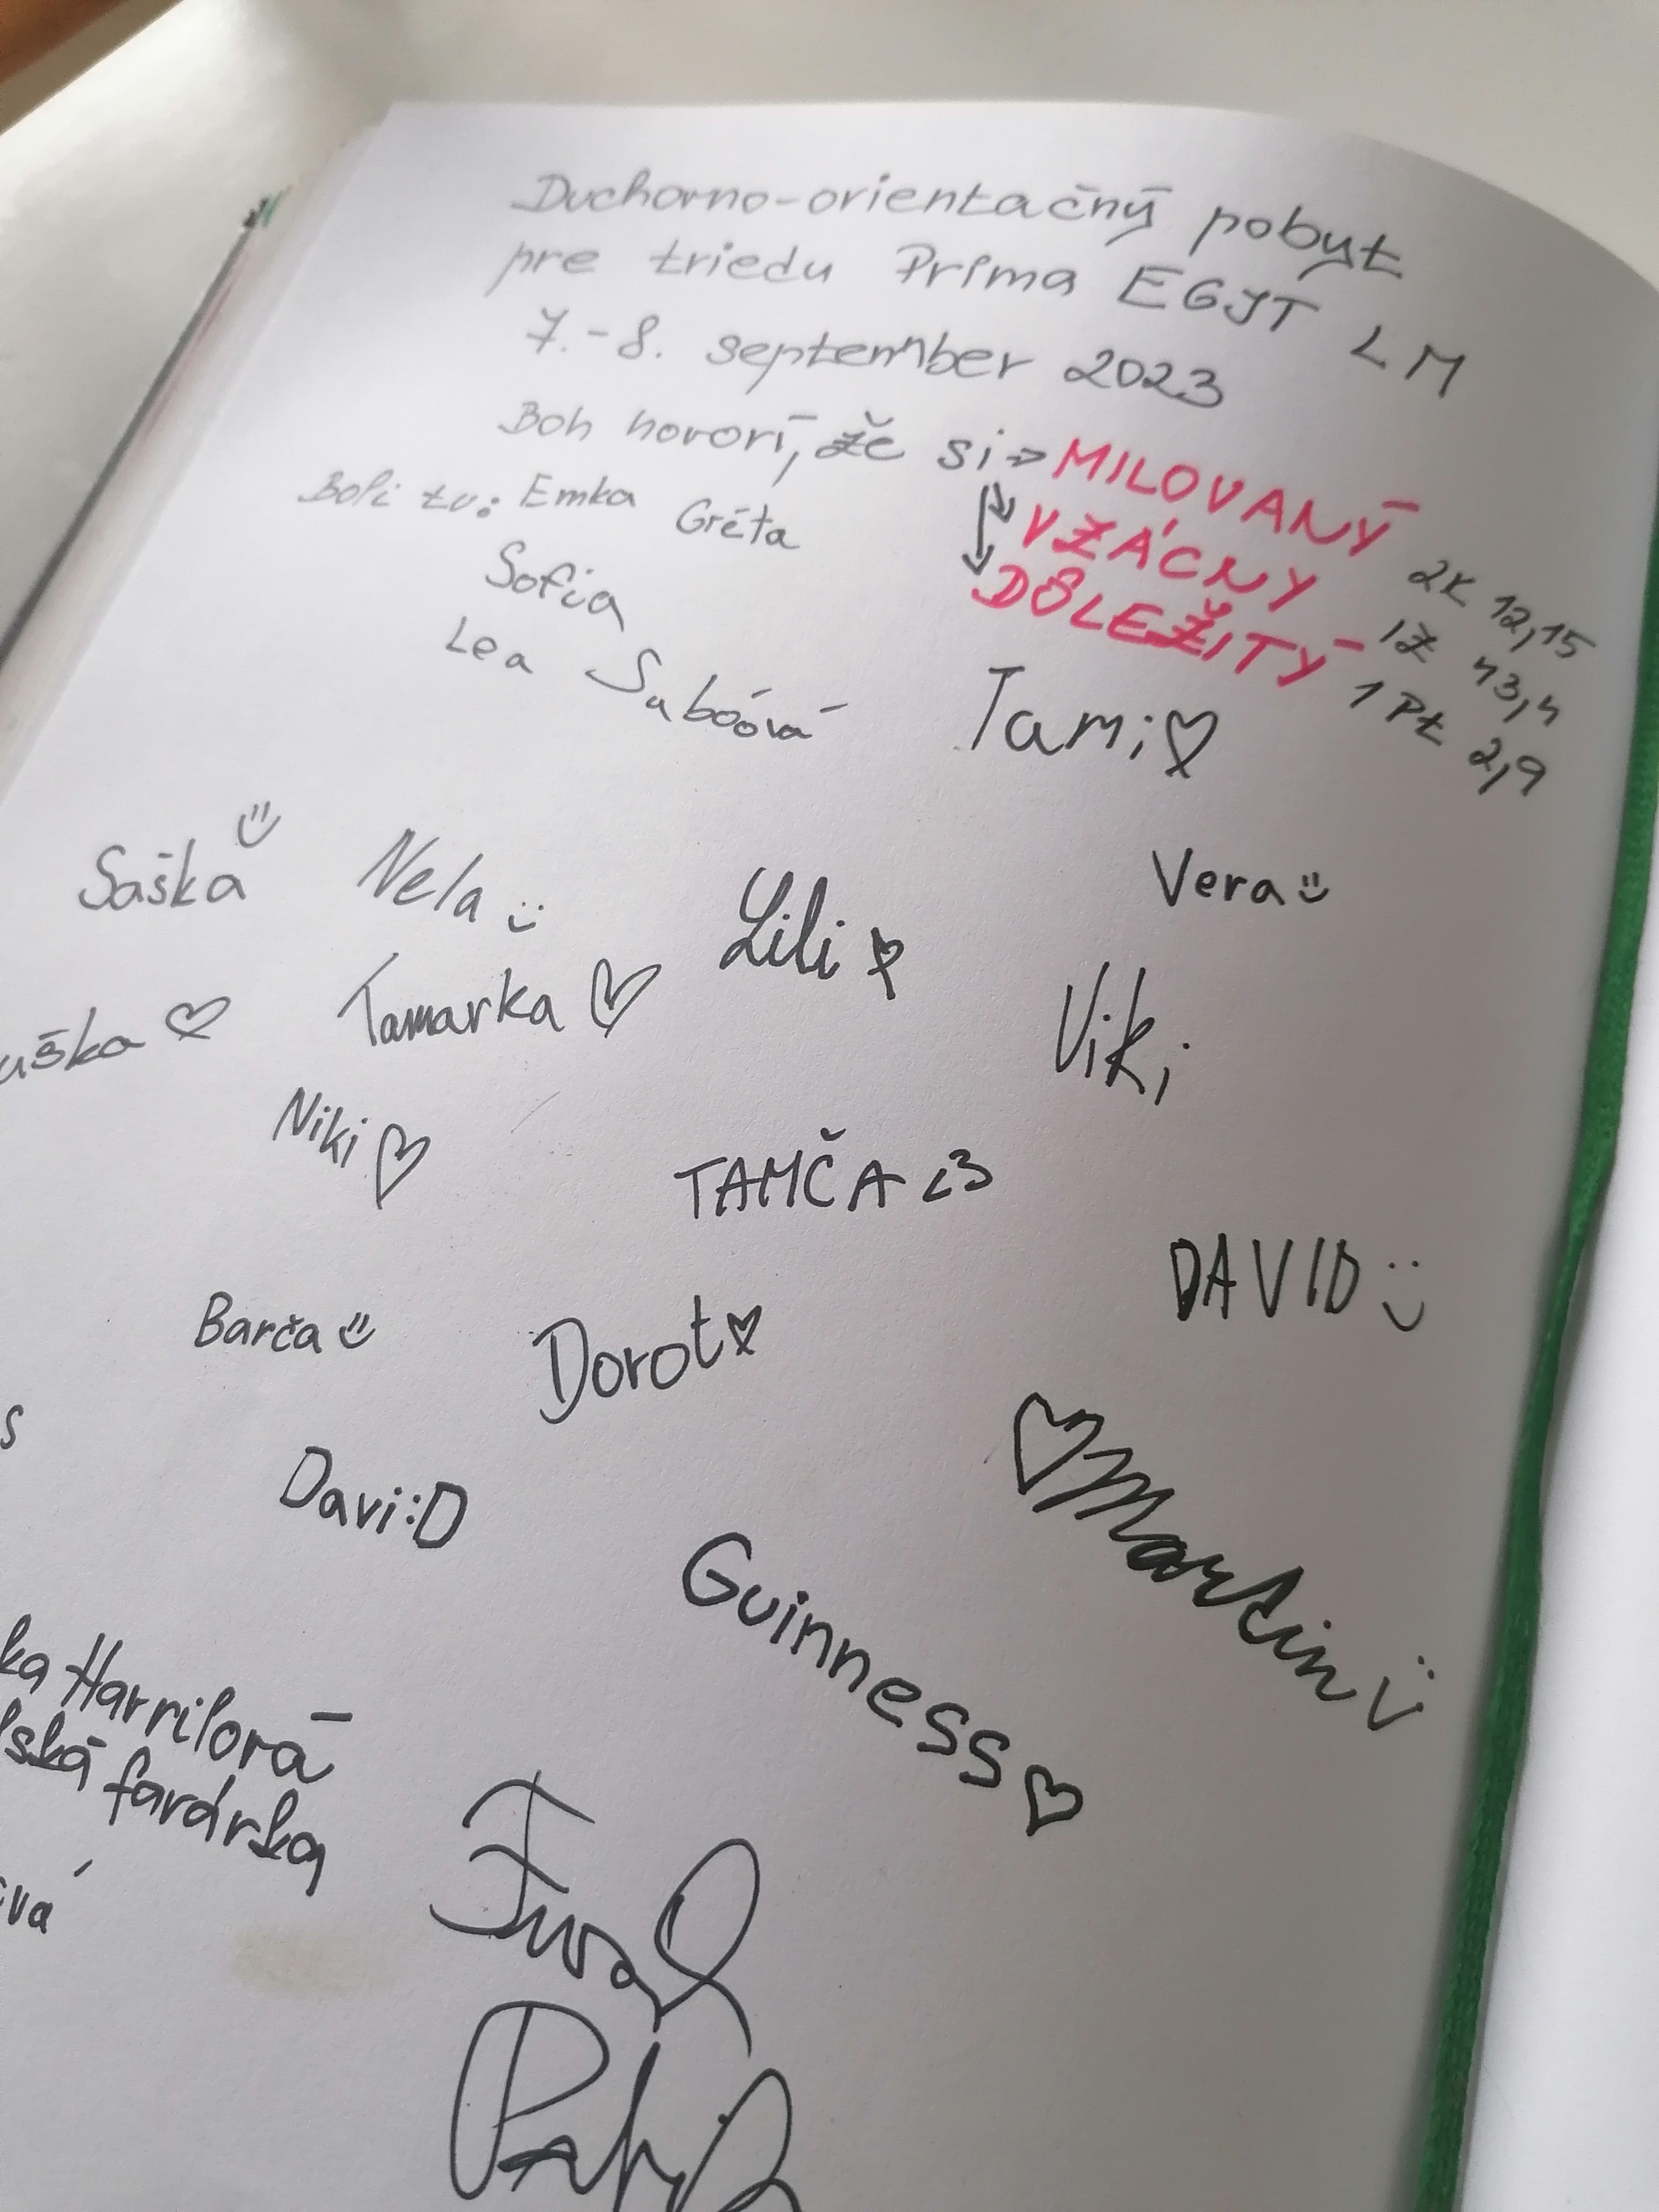 Duchovno-orientačný pobyt
pre triedu Príma EGJT LM
7.-8. september 2023
Boh hovorí, že si => MILOVANÝ 2K 12,15
VZÁCNY IZ 43,4
DÔLEŽITÝ 1 Pt 2,9
Boli tu: Emka Gréta
Sofia
Lea Sabóová
Tami ♡
Saška
Nela
Lili ♡
Vera
uška ♡
Tamarka ♡
Viki
Niki ♡
TAMČA <3
DAVID :)
Barča
Dorot ♡
s
Davi:D
♡ Martin
Guinness ♡
ka
lská farárka
vá